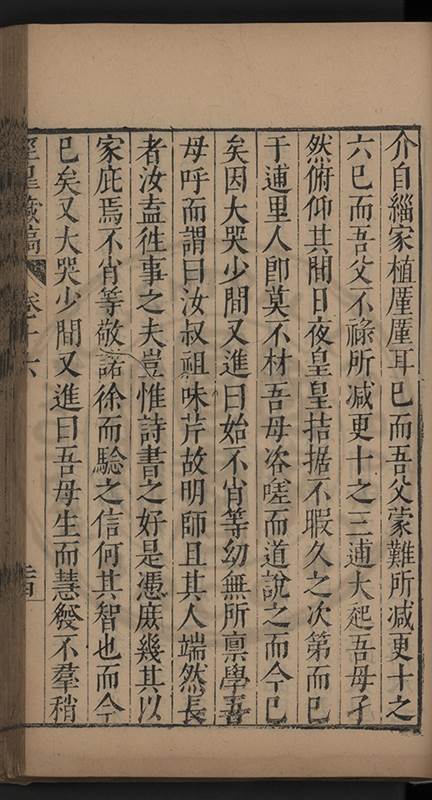 介自緇家植厪厪耳已而吾父蒙難所减更十之
六已而吾父不祿所减更十之三逋大起吾母孑
然俯仰其間日夜皇皇拮据不暇久之次第而已
于逋里人卽莫不材吾母咨嗟而道說之而今已
矣因大哭少間又進曰始不肖等幼無所禀學吾
母呼而謂曰汝叔祖味芹故明師且其人端然長
者汝盍徃事之夫豈惟詩書之好是憑庶幾其以
家庇焉不肖等敬諾徐而驗之信何其智也而今
已矣又大哭少間又進曰吾母生而慧發不羣稍
涇臯藏稿 卷十六 二十四